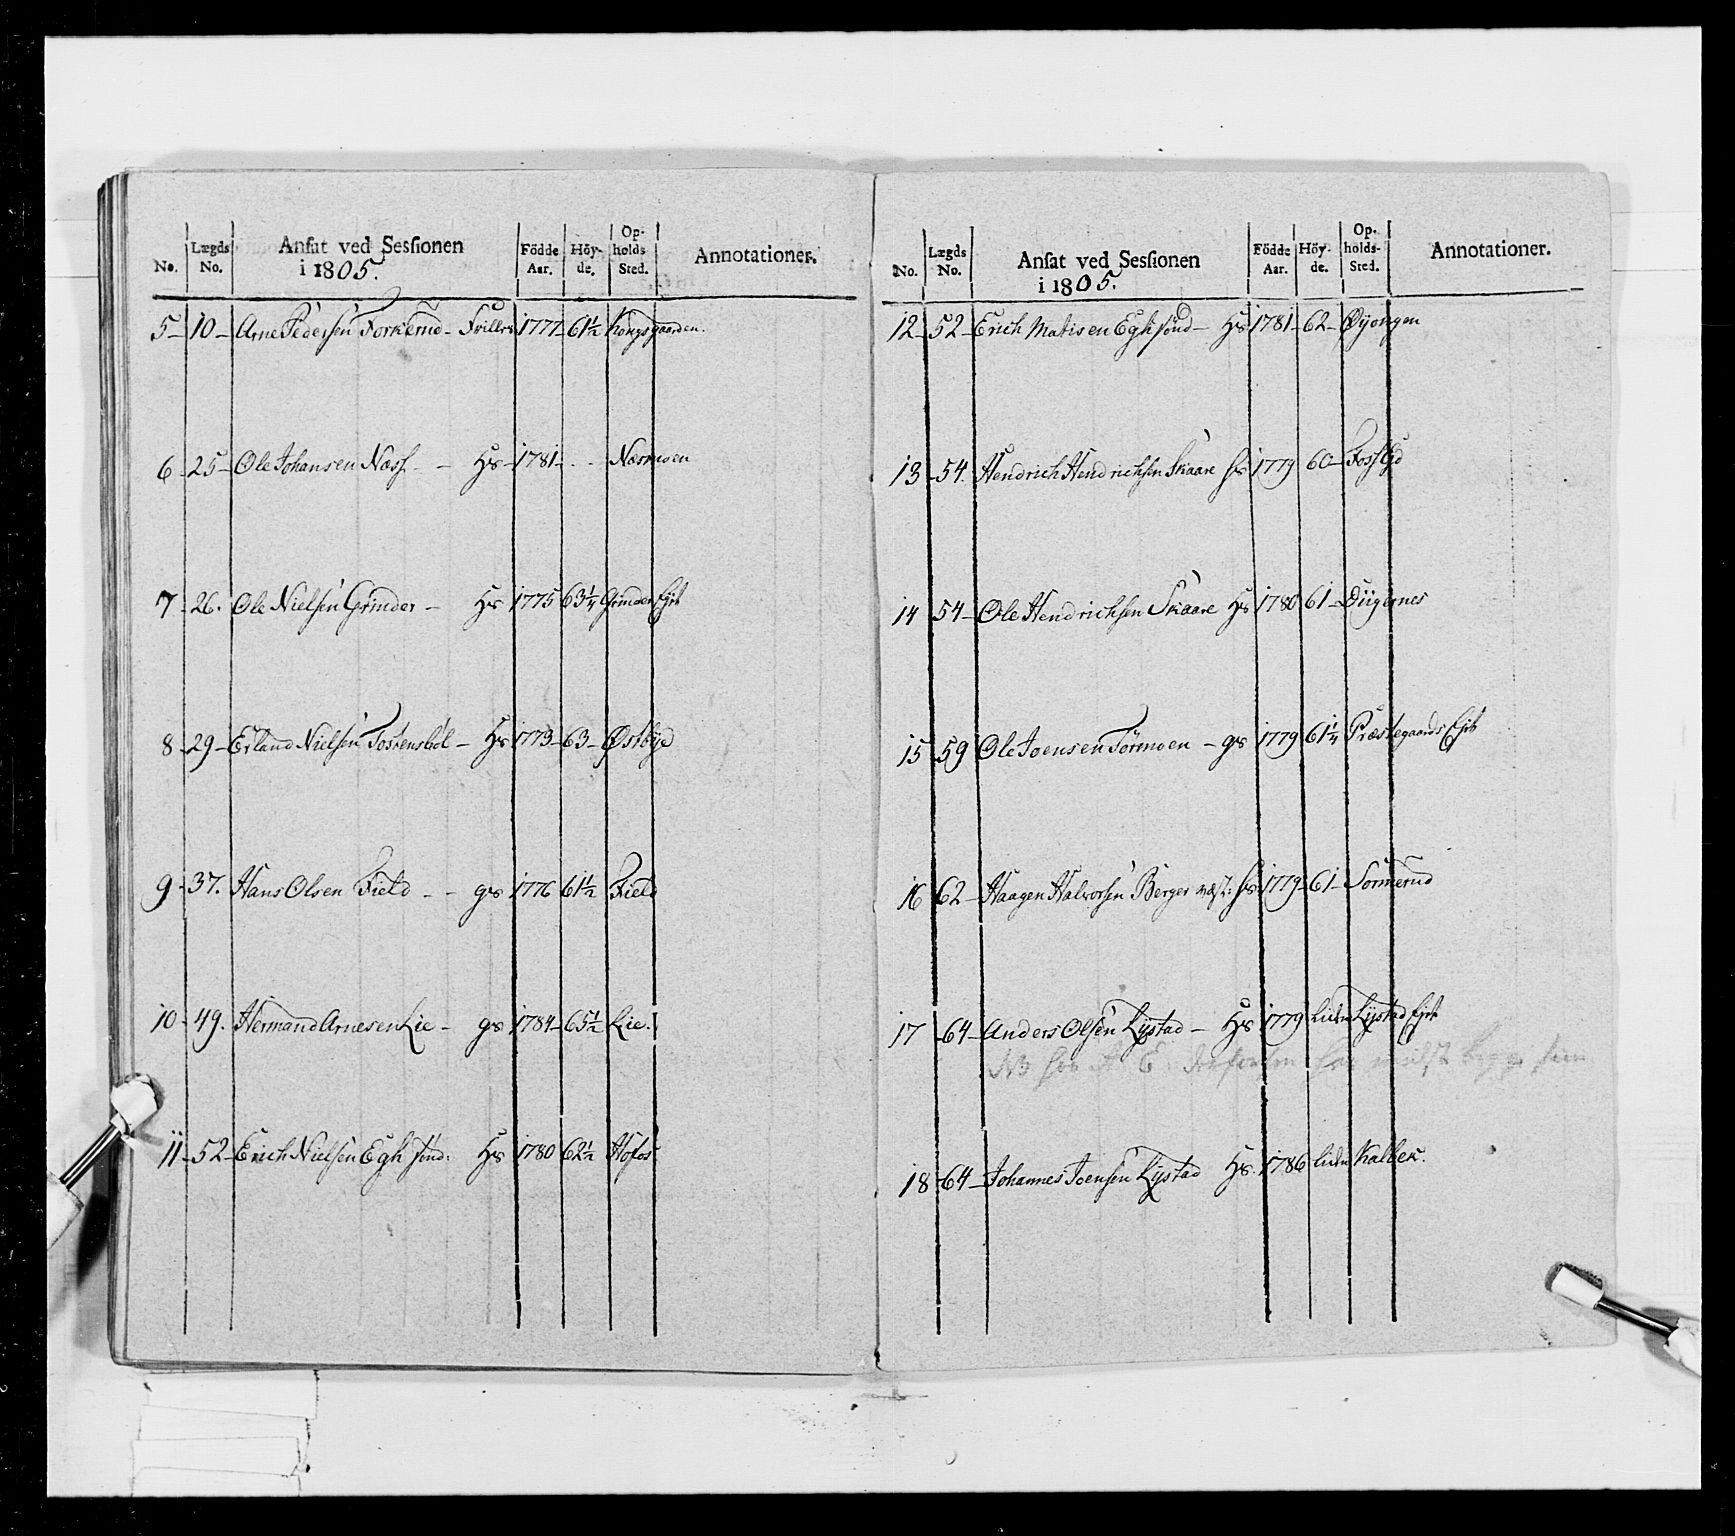 No. Lægds No. Ansat ved Sessionen i 1805. Födde Aar. Höyde. Opholds Sted. Annotationer.
5 - 10 - Arne Pedersen Torkerud - 1777 61½ Kongsgaarden.
6 - 25 - Ole Johansen Næss - - Hs - 1781 - - - Næsmoen
7 - 26. Ole Nielsen Grinder - Hs 1775 63¼ Grinder Ejet
8 - 29 - Erland Nielsen Tostensböl - Hs 1773 - 63 - Østbye
9 - 37. Hans Olsen Field - - gs 1776 61½ Field
10 - 49. Hermand Arnesen Lie - gs 1784 - 65½ Lie.
11 - 52 - Erich Nielsen Egh sönd: Hs 1780 62½ Hofos
No. Lægds No. Ansat ved Sessionen i 1805. Födde Aar. Höyde. Opholds-Sted. Annotationer.
12 - 52 - Erich Matisen Egh sönd - Hs 1781 - 62 - Øyongen
13 - 54. Hendrich Hendrichsen Skaare Hs 1779 60 -
14 54 - Ole Hendrichsen Skaare Hs 1780 61 - Diigernes
15 59 Ole Joensen Törmoen - gs 1779 61¼ Præstegaards Ejet
16 62 - Haagen Halvorsen Berger vest: Hs 1779 - 61 - Sormerud
17 - 64 - Anders Olsen Lystad - Hs 1779 liden Lystad Ejet
18 - 64 - Johannes Joensen Lystad Hs. 1786 liden Kalbek.